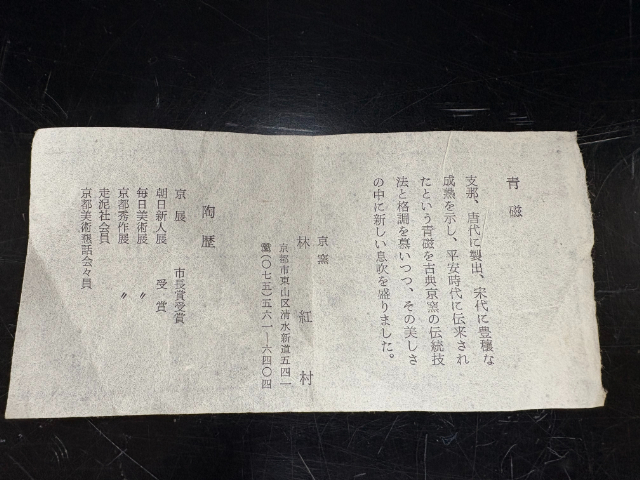 青磁
支那、唐代に製出、宋代に豊穣な
成熟を示し、平安時代に伝来され
たという青磁を古典京窯の伝統技
法と格調を慕いつつ、その美しさ
の中に新しい息吹を盛りました。
京窯
林紅村
京都市東山区清水新道五四一
電(〇七五)五六一―六四〇四
陶歴
京展 市長賞受賞
朝日新人展 受賞
毎日美術展 〃
京都秀作展 〃
走泥社会員
京都美術懇話会々員